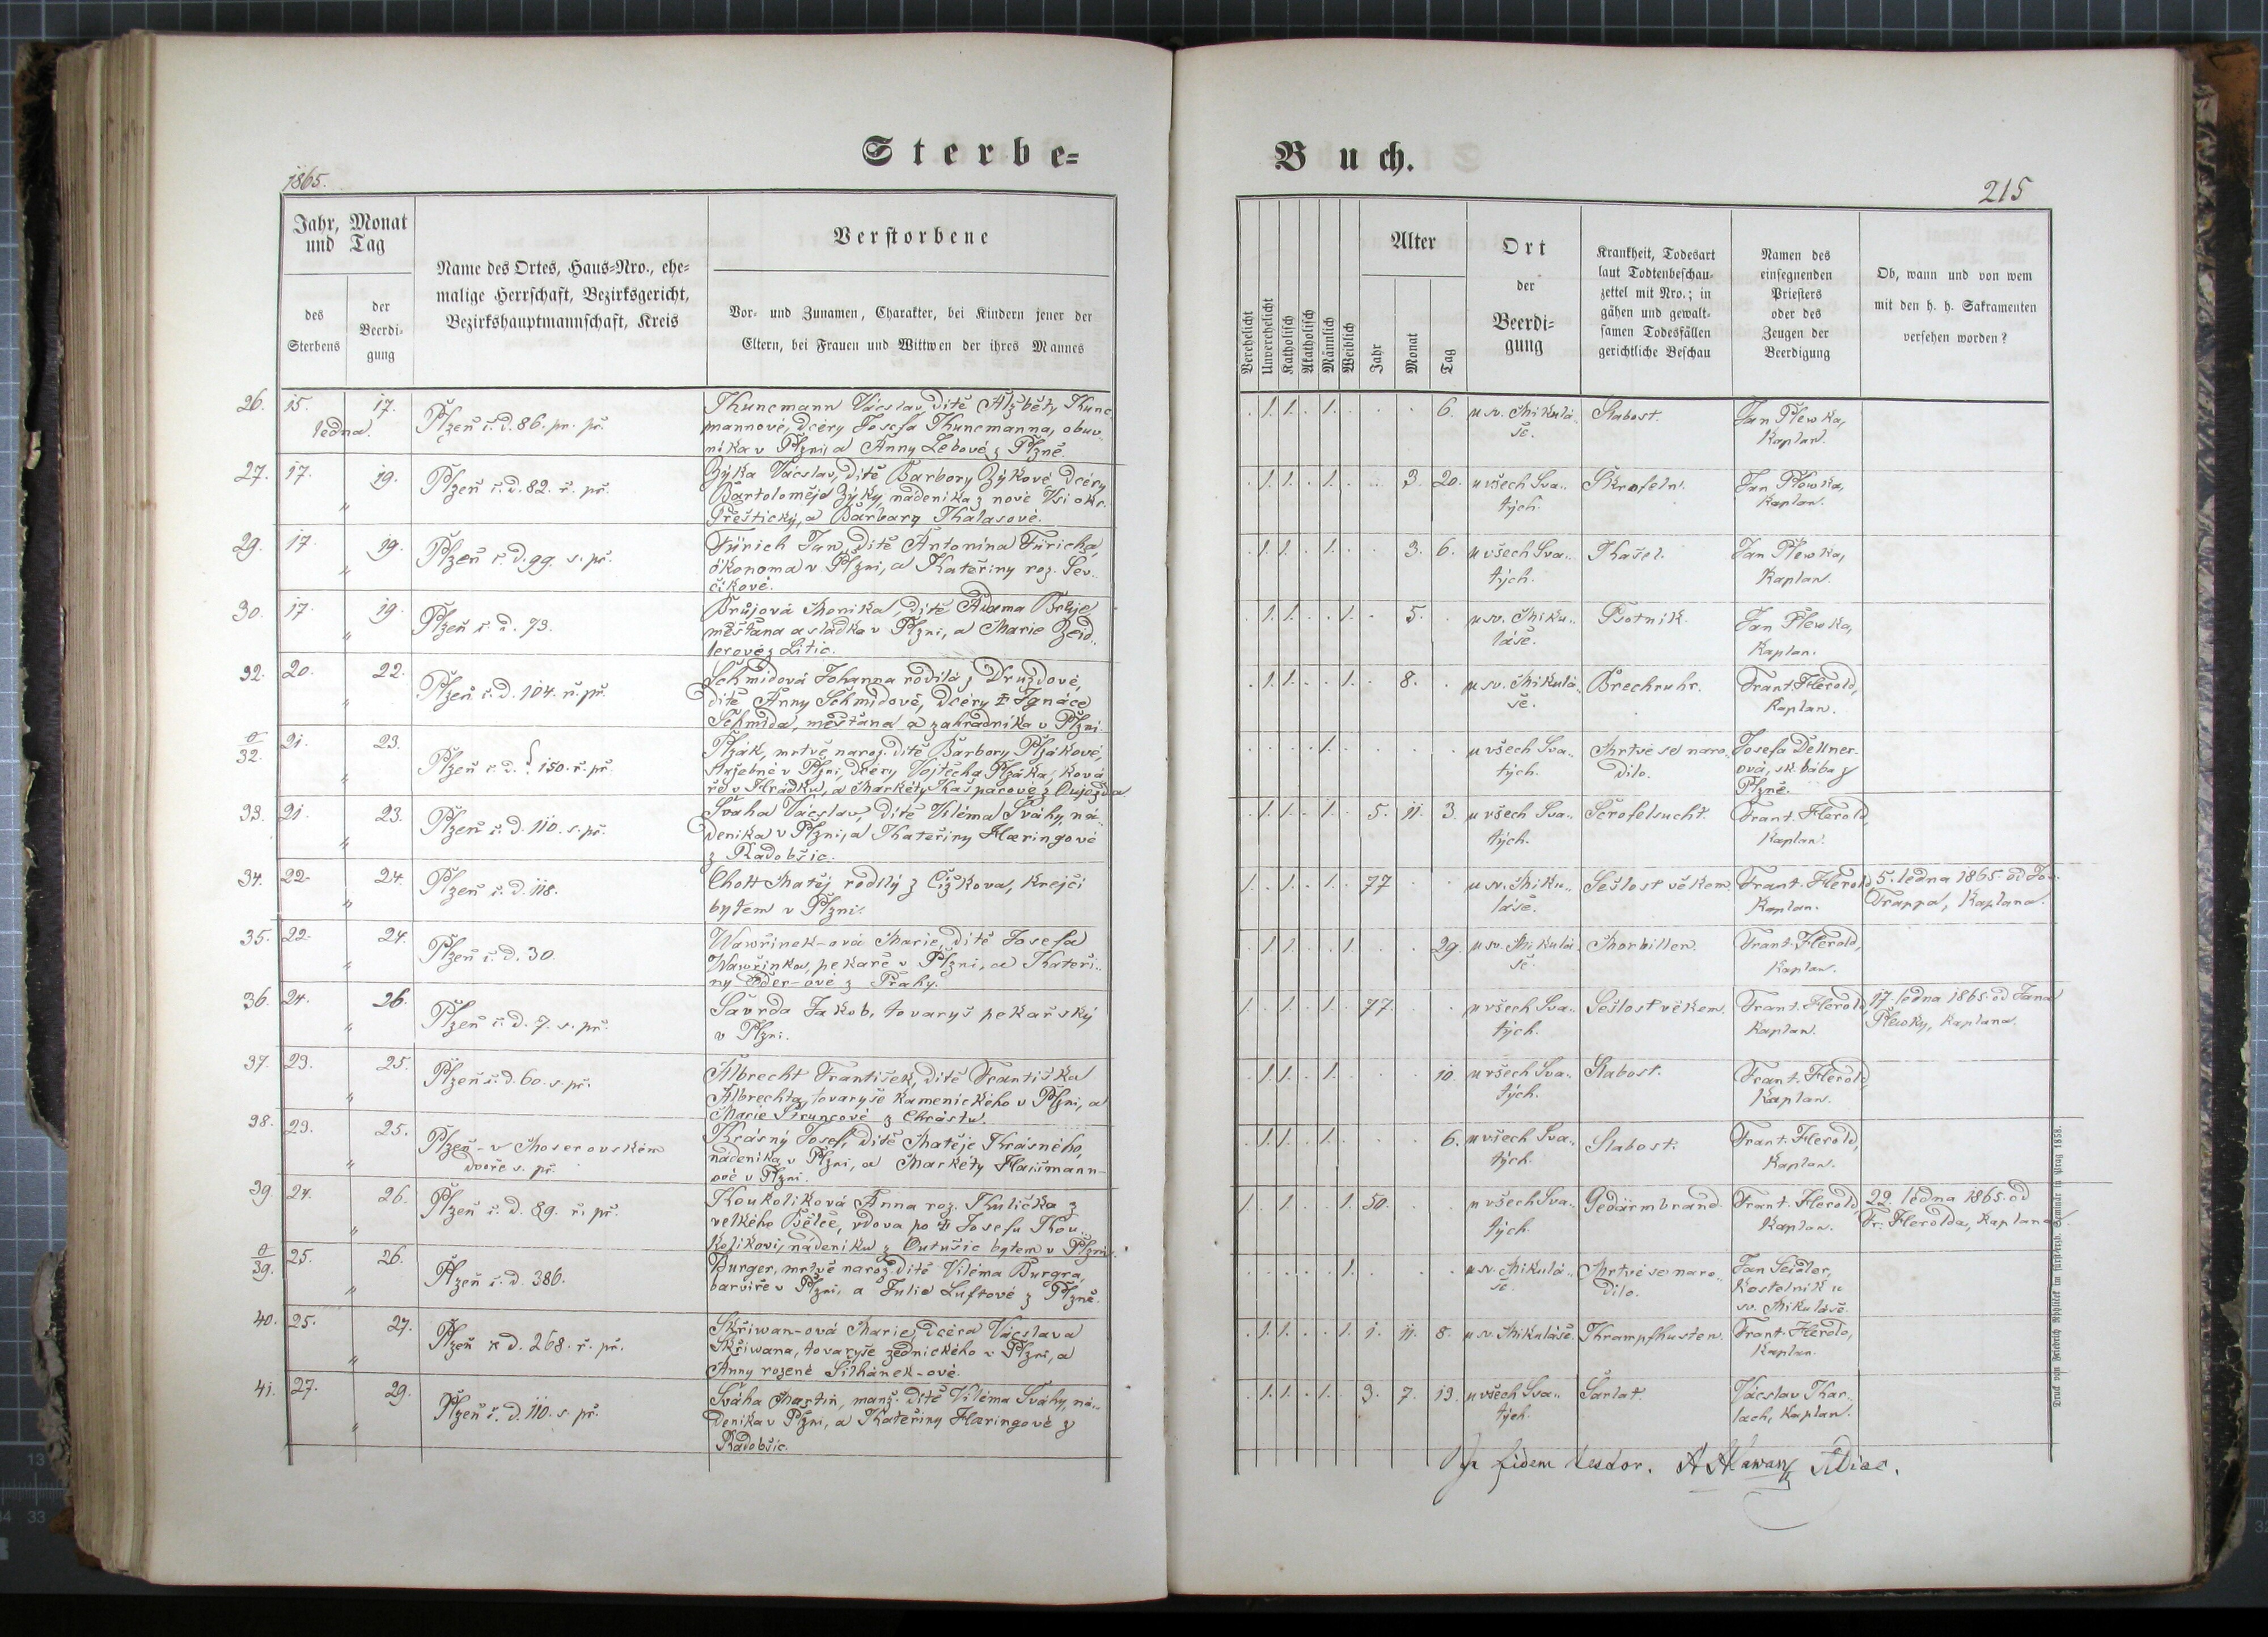 Sterbe=
1865.
Jahr, Monat
und Tag
des
Sterbens
der
Beerdi=
gung
Name des Ortes, Haus=Nro., ehe=
malige Herrschaft, Bezirksgericht,
Bezirkshauptmannschaft, Kreis
Verstorbene
Vor= und Zunamen, Charakter, bei Kindern jener der
Eltern, bei Frauen und Wittwen der ihres Mannes
26. 15. 17.
ledna.
Plzeň č. d. 86. pr. př.
Kuncmann Vácslav, dítě Alžběty Kunc
mannové, dcéry Josefa Kuncmanna, obuv..
níka v Plzni, a Anny Lebové z Plzně.
27. 17. 19.
"
Plzeň č. d. 82. ř. př.
Zýka Vácslav, dítě Barbory Zýkové, dcéry
Bartoloměje Zýky, nádeníka z nové Vsi okr.
Přeštický, a Barbary Thalasové.
29. 17. 19.
"
Plzeň č. d. 99. s. př.
Fürich Jan, dítě Antonína Füricha,
ökonoma v Plzni, a Kateřiny roz. Šev..
číkové.
30. 17. 19.
"
Plzeň č. d. 73.
Brůjová Monika, dítě Adama Brůje
měšťana a sládka v Plzni, a Marie Zeid..
lerové z Litic.
32. 20. 22.
"
Plzeň č. d. 104. ř. př.
Schmidová Johanna rodilá z Druzdové,
dítě Anny Schmidové, dcéry ‡ Ignáce
Schmida, měšťana a zahradníka v Plzni
0/32. 21. 23.
"
Plzeň č. d. 150. ř. př.
Plzák, mrtvě naroz. dítě Barbory Plzákové,
služebné v Plzni, dcéry Vojtěcha Plzáka, ková
ře v Hrádku, a Markéty Kašparové z Oujezda
33. 21. 23.
"
Plzeň č. d. 110. s. př.
Sváha Vácslav, dítě Viléma Sváhy, ná..
deníka v Plzni, a Kateřiny Haeringové
z Radobšic.
34. 22. 24.
"
Plzeň č. d. 118.
Chott Matěj rodilý z Čížkova, krejčí
bytem v Plzni.
35. 22. 24.
"
Plzeň č. d. 30.
Wawřinek-ová Marie, dítě Josefa
Wawřinka, pekaře v Plzni, a Kateři..
ny Eder-ové z Prahy.
36. 24. 26.
"
Plzeň č. d. 7. s. př.
Šavrda Jakob, tovaryš pekařský
v Plzni.
37. 23. 25.
"
Plzeň č. d. 60. s. př.
Albrecht František, dítě Františka
Albrechta, tovaryše kamenického v Plzni, a
Marie Štruncové z Chrástu.
38. 23. 25.
"
Plzeň - v Moserovském
dvoře s. př.
Krásný Josef, dítě Matěje Krásného,
nádeníka v Plzni, a Markéty Hausmann-
ové v Plzni.
39. 24. 26.
"
Plzeň č. d. 89. ř. př.
Koukolíková Anna roz. Kulička z
velkého Bělče, vdova po ‡ Josefu Kou..
kolíkovi, nádeníku z Outušic bytem v Plzni.
0/39. 25. 26.
"
Plzeň č. d. 386.
Burger, mrtvě naroz. dítě Viléma Burgra,
barvíře v Plzni, a Julie Luftové z Plzně.
40. 25. 27.
"
Plzeň č. d. 268. ř. př.
Skřiwan-ová Marie, dcéra Vácslava
Skřiwana, tovaryše zednického v Plzni, a
Anny rozené Silhánek-ové.
41. 27. 29.
"
Plzeň č. d. 110. s. př.
Sváha Martin, manž. dítě Viléma Sváhy, ná..
deníka v Plzni, a Kateřiny Haeringové z
Radobšic.
Buch.
215
Verehelicht
Unverehelicht
Katholisch
Akatholisch
Männlich
Weiblich
Alter
Jahr
Monat
Tag
Ort
der
Beerdi=
gung
Krankheit, Todesart
laut Todtenbeschau=
zettel mit Nro.; in
gähen und gewalt=
samen Todesfällen
gerichtliche Beschau
Namen des
einsegnenden
Priesters
oder des
Zeugen der
Beerdigung
Ob, wann und von wem
mit den h. h. Sakramenten
versehen worden?
. 1. 1. . 1. . . . 6. u sv. Mikulá
še.
Slabost.
Jan Plewka,
Kaplan.
. 1. 1. . 1. . . 3. 20. u všech Sva..
tých.
Skrofeln.
Jan Plewka,
Kaplan.
. 1. 1. . 1. . . 3. 6. u všech Sva..
tých.
Kašel.
Jan Plewka,
Kaplan.
. 1. 1. . . 1. . 5. . u sv. Miku..
láše.
Psotník.
Jan Plewka,
Kaplan.
. 1. 1. . . 1. . 8. . u sv. Mikulá..
še.
Brechruhr.
Frant. Herold,
Kaplan.
. . . . 1. . . . . u všech Sva..
tých.
Mrtvé se naro..
dilo.
Josefa Dellner-
ová, sk. bába z
Plzně.
. 1. 1. . 1. . 5. 11. 3. u všech Sva..
tých.
Scrofelsucht.
Frant. Herold,
Kaplan.
1. . 1. . 1. . 77 . . u sv. Miku..
láše.
Sešlost věkem.
Frant. Herold,
Kaplan.
5. ledna 1865. od Jo..
Trappa, Kaplana.
. 1. 1. . . 1. . . 29. u sv. Mikulá
še.
Morbillen.
Frant. Herold,
Kaplan.
1. . 1. . 1. . 77. . . u všech Sva..
tých.
Sešlost věkem.
Frant. Herold,
Kaplan.
17. ledna 1865. od Jana
Plewky, Kaplana.
. 1. 1. . 1. . . . 10. u všech Sva..
tých.
Slabost.
Frant. Herold,
Kaplan.
. 1. 1. . 1. . . . 6. u všech Sva..
tých.
Slabost.
Frant. Herold,
Kaplan.
1. . 1. . . 1. 50. . . u všech Sva..
tých.
Gedärmbrand.
Frant. Herold,
Kaplan.
22. ledna 1865. od
Fr. Herolda, Kaplana.
. . . . . 1. . . . u sv. Mikulá..
še.
Mrtvé se naro..
dilo.
Jan Seidler,
Kostelník u
sv. Mikuláše.
. 1. 1. . . 1. 1. 11. 8. u sv. Mikuláše.
Krampfhusten.
Frant. Herold,
Kaplan.
. 1. 1. . 1. . 3. 7. 13. u všech Sva..
tých.
Šarlat.
Vácslav Kar..
lach, Kaplan.
fidem
Druck von Friedrich Rohliček im fürsterzb. Seminär in Prag 1858.